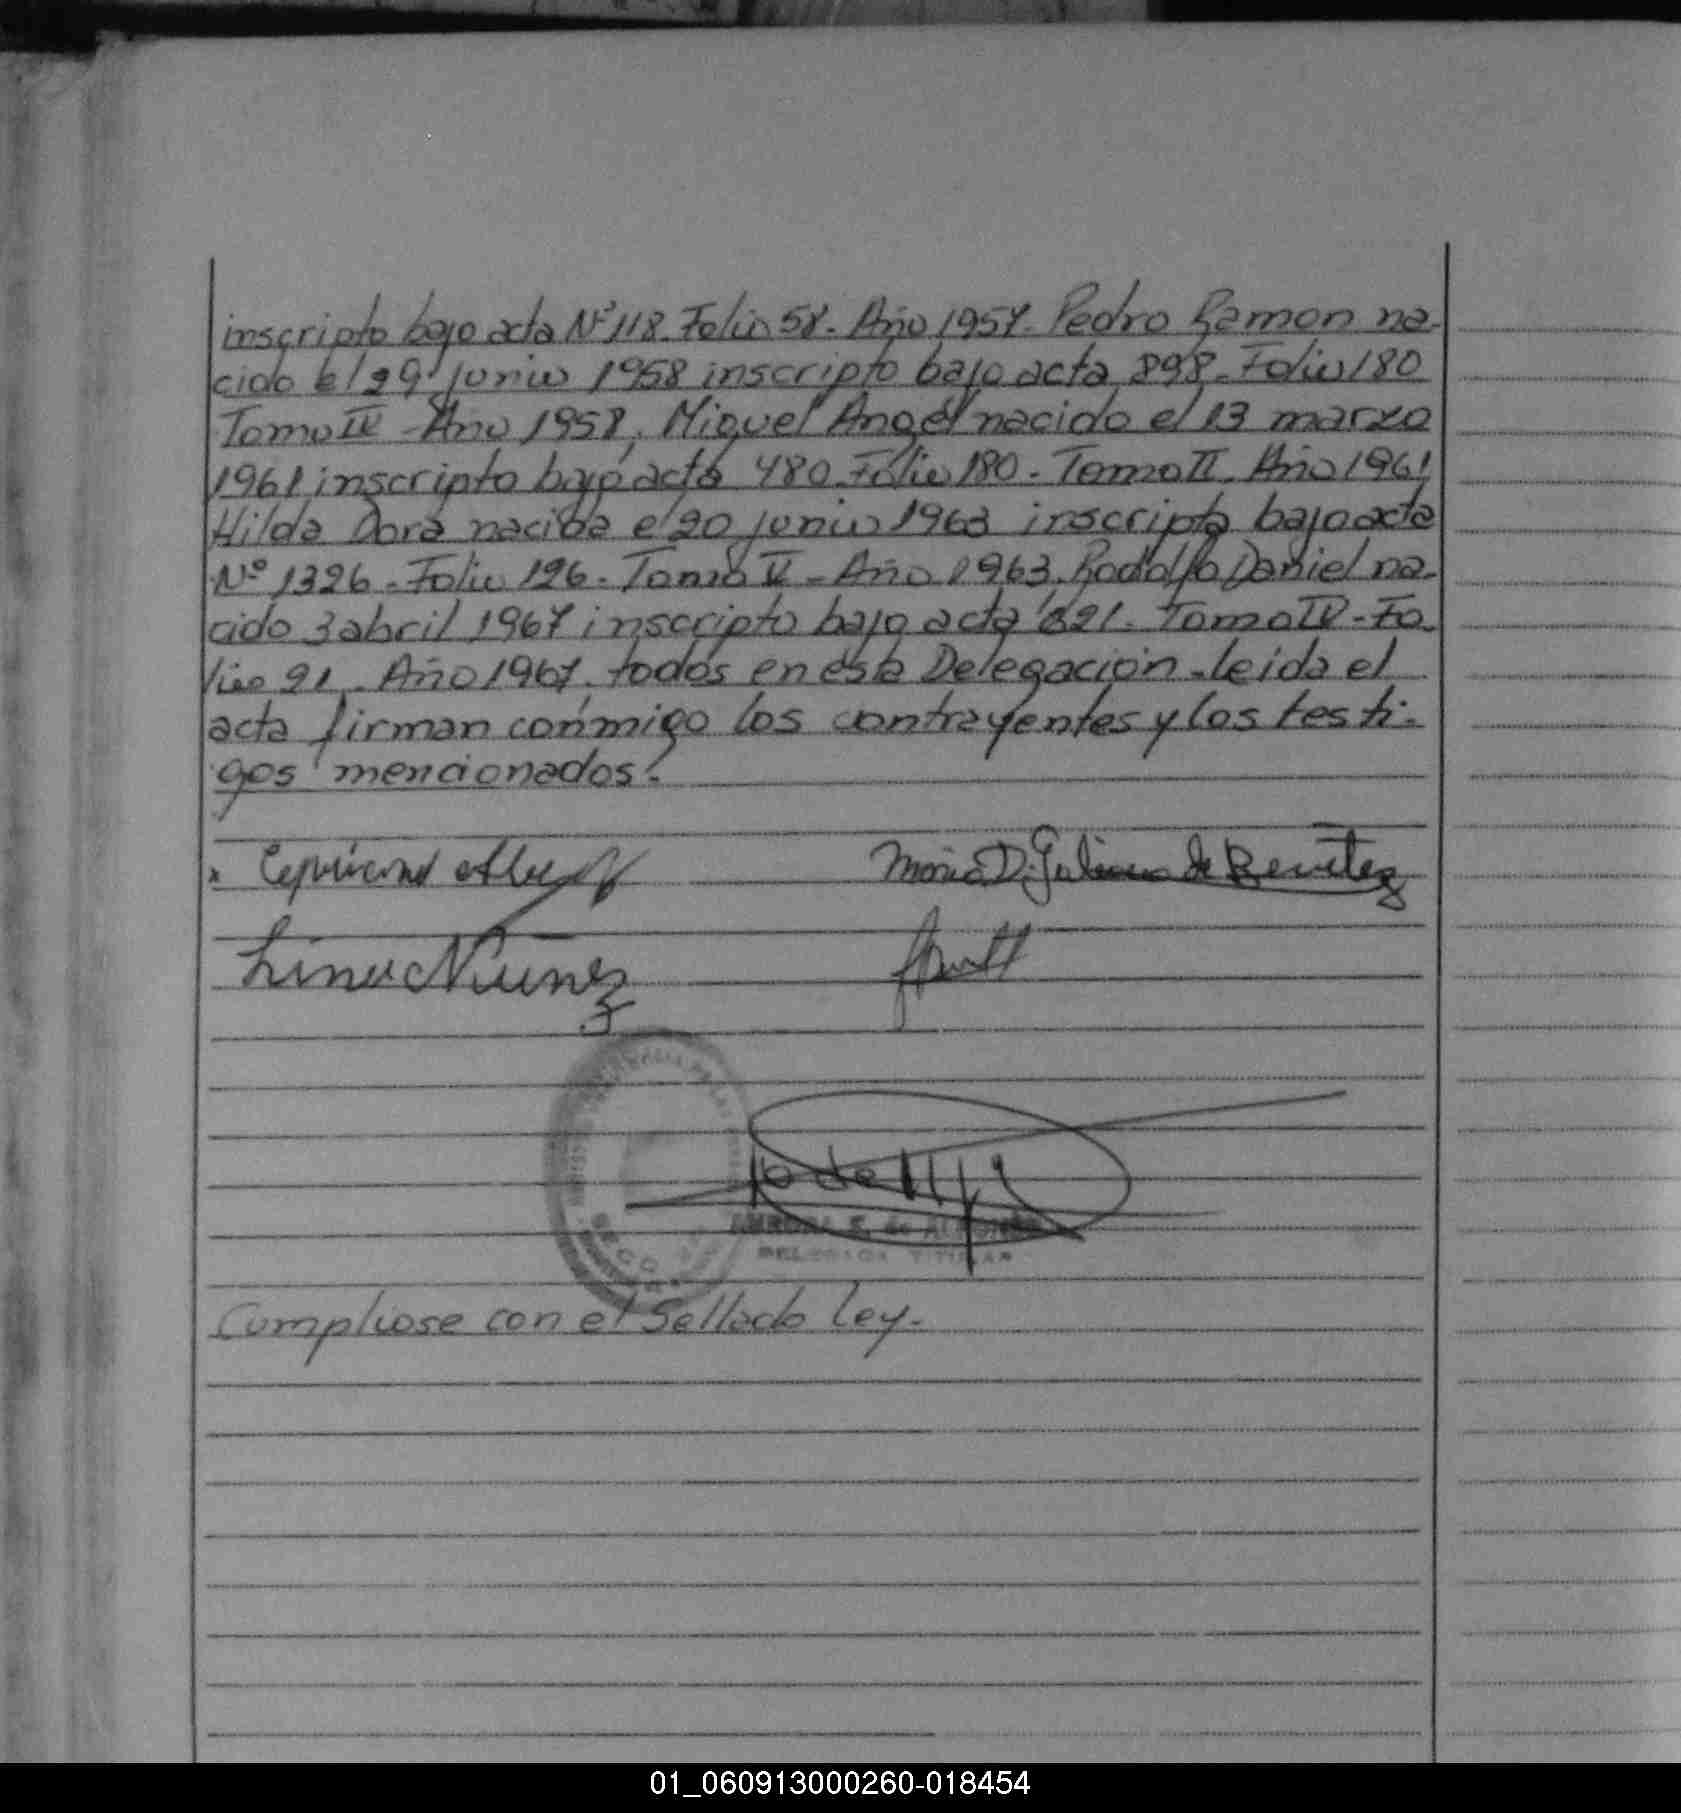 inscripto bajo acta Nº 118. Folio 58. Año 1957. Pedro Ramon na-
cido el 29 junio 1958 inscripto bajo acta 898. Folio 180
Tomo IV - Año 1958, Miguel Angel nacido el 13 marzo
1961 inscripto bajo acta 480. Folio 180. Tomo II. Año 1961
Hilda Dora nacida el 20 junio 1963 inscripta bajo acta
Nº 1326 - Folio 126. Tomo V - Año 1963, Rodolfo Daniel na-
cido 3 abril 1967 inscripto bajo acta 821. Tomo IV - Fo-
lio 21. Año 1967. todos en ésta Delegación. leida el
acta firman conmigo los contrayentes y los testi-
gos mencionados.
Maria D. de Benitez
Lino Nuñez
DELEGADA TITULAR
Cumpliose con el Sellado ley.
01_060913000260-018454